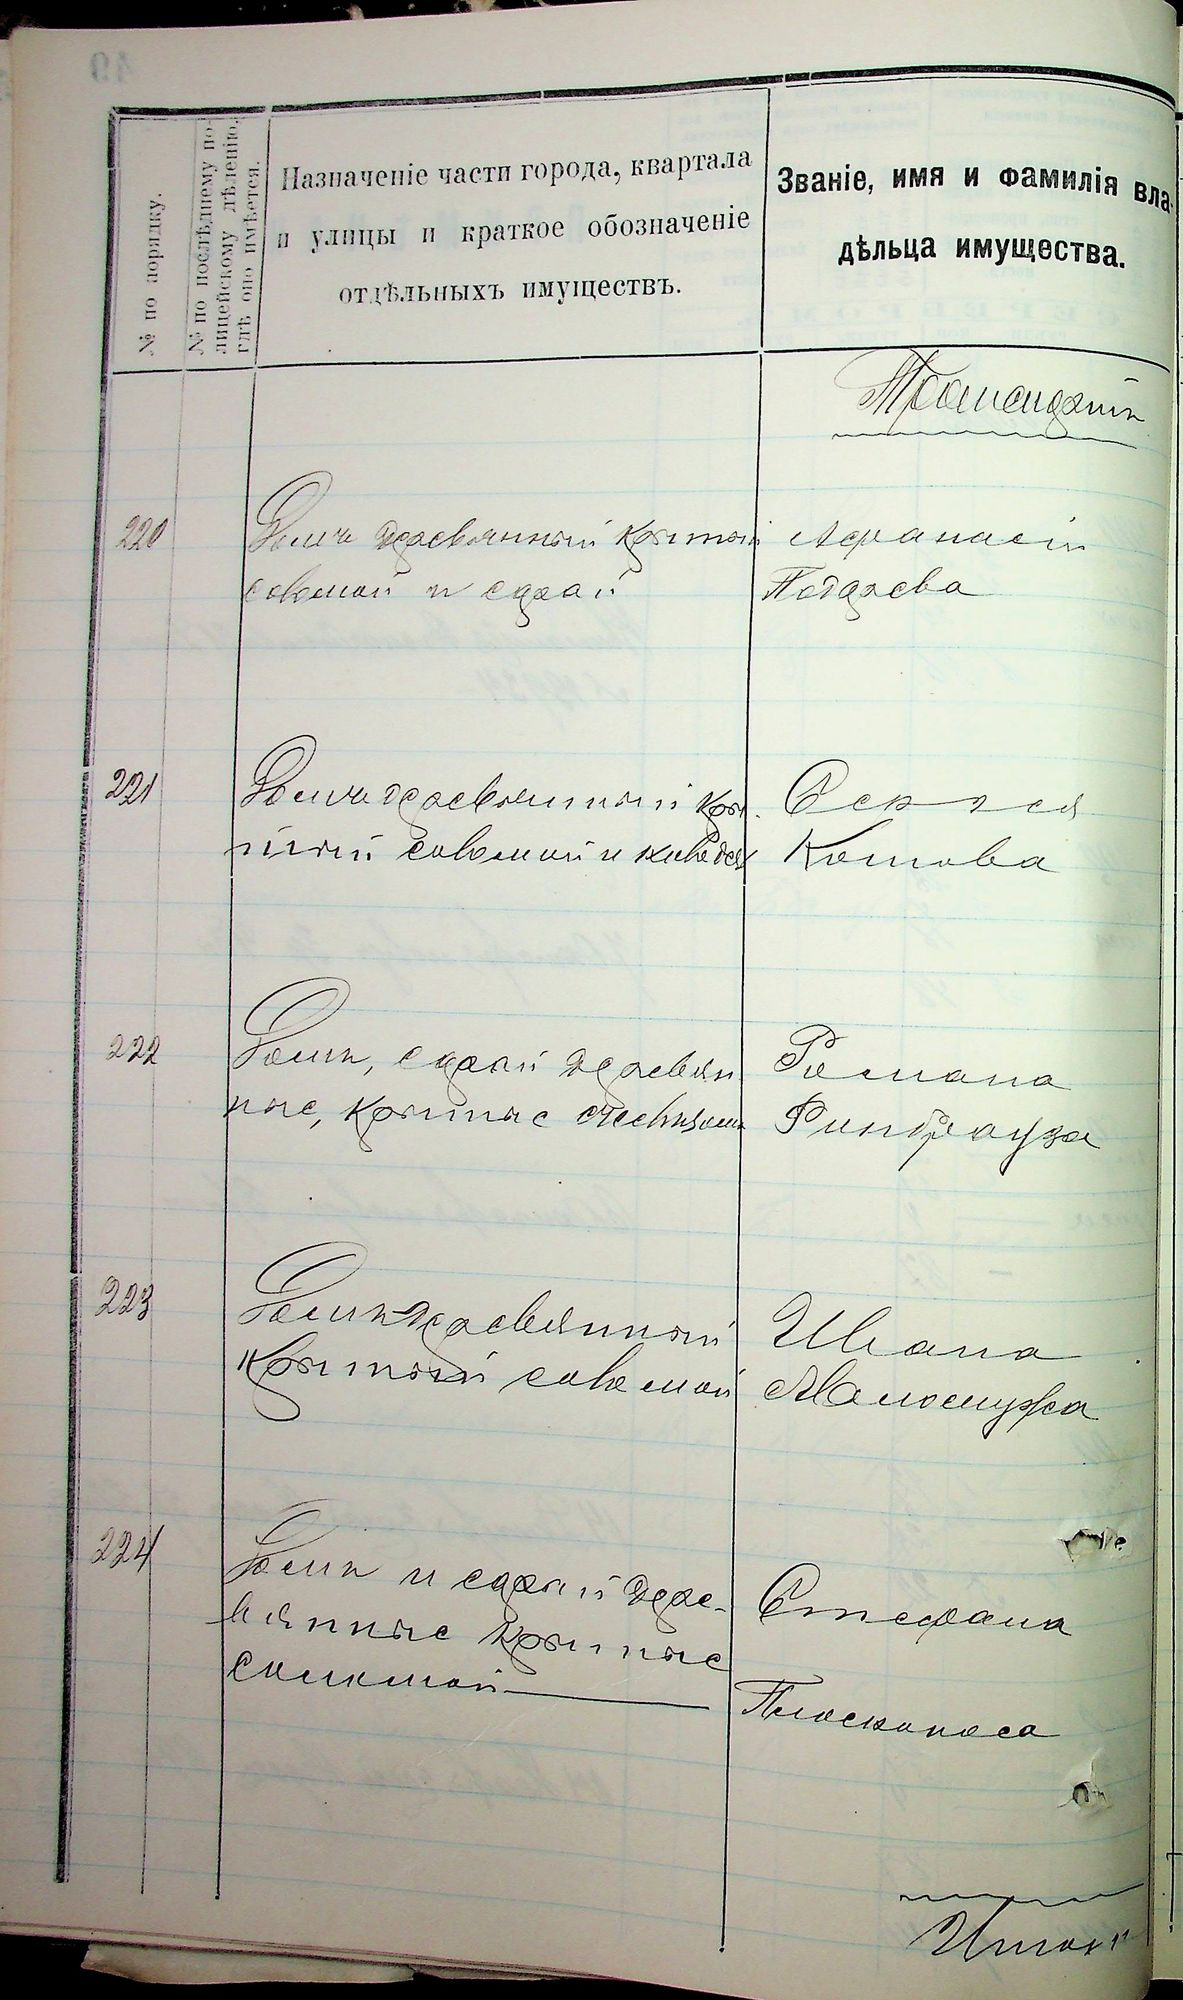 № по порядку.
№ по послѣднему по-
лицейскому дѣленію,
гдѣ оно имѣется.
Назначеніе части города, квартала
и улицы и краткое обозначеніе
отдѣльныхъ имуществъ.
Званіе, имя и фамилія вла-
дѣльца имущества.
220
Домъ деревянный крытый
соломой и сарай
Афанасій
221
Домъ деревянный кры-
тый соломой и
Котова
222
Домъ, сарай деревян
ные, крытые
Романа
223
Домъ деревянный
крытый соломой
Ивана
224
Домъ и сарай дере-
вянные крытые
соломой
Стефана
Плосконоса
Итого